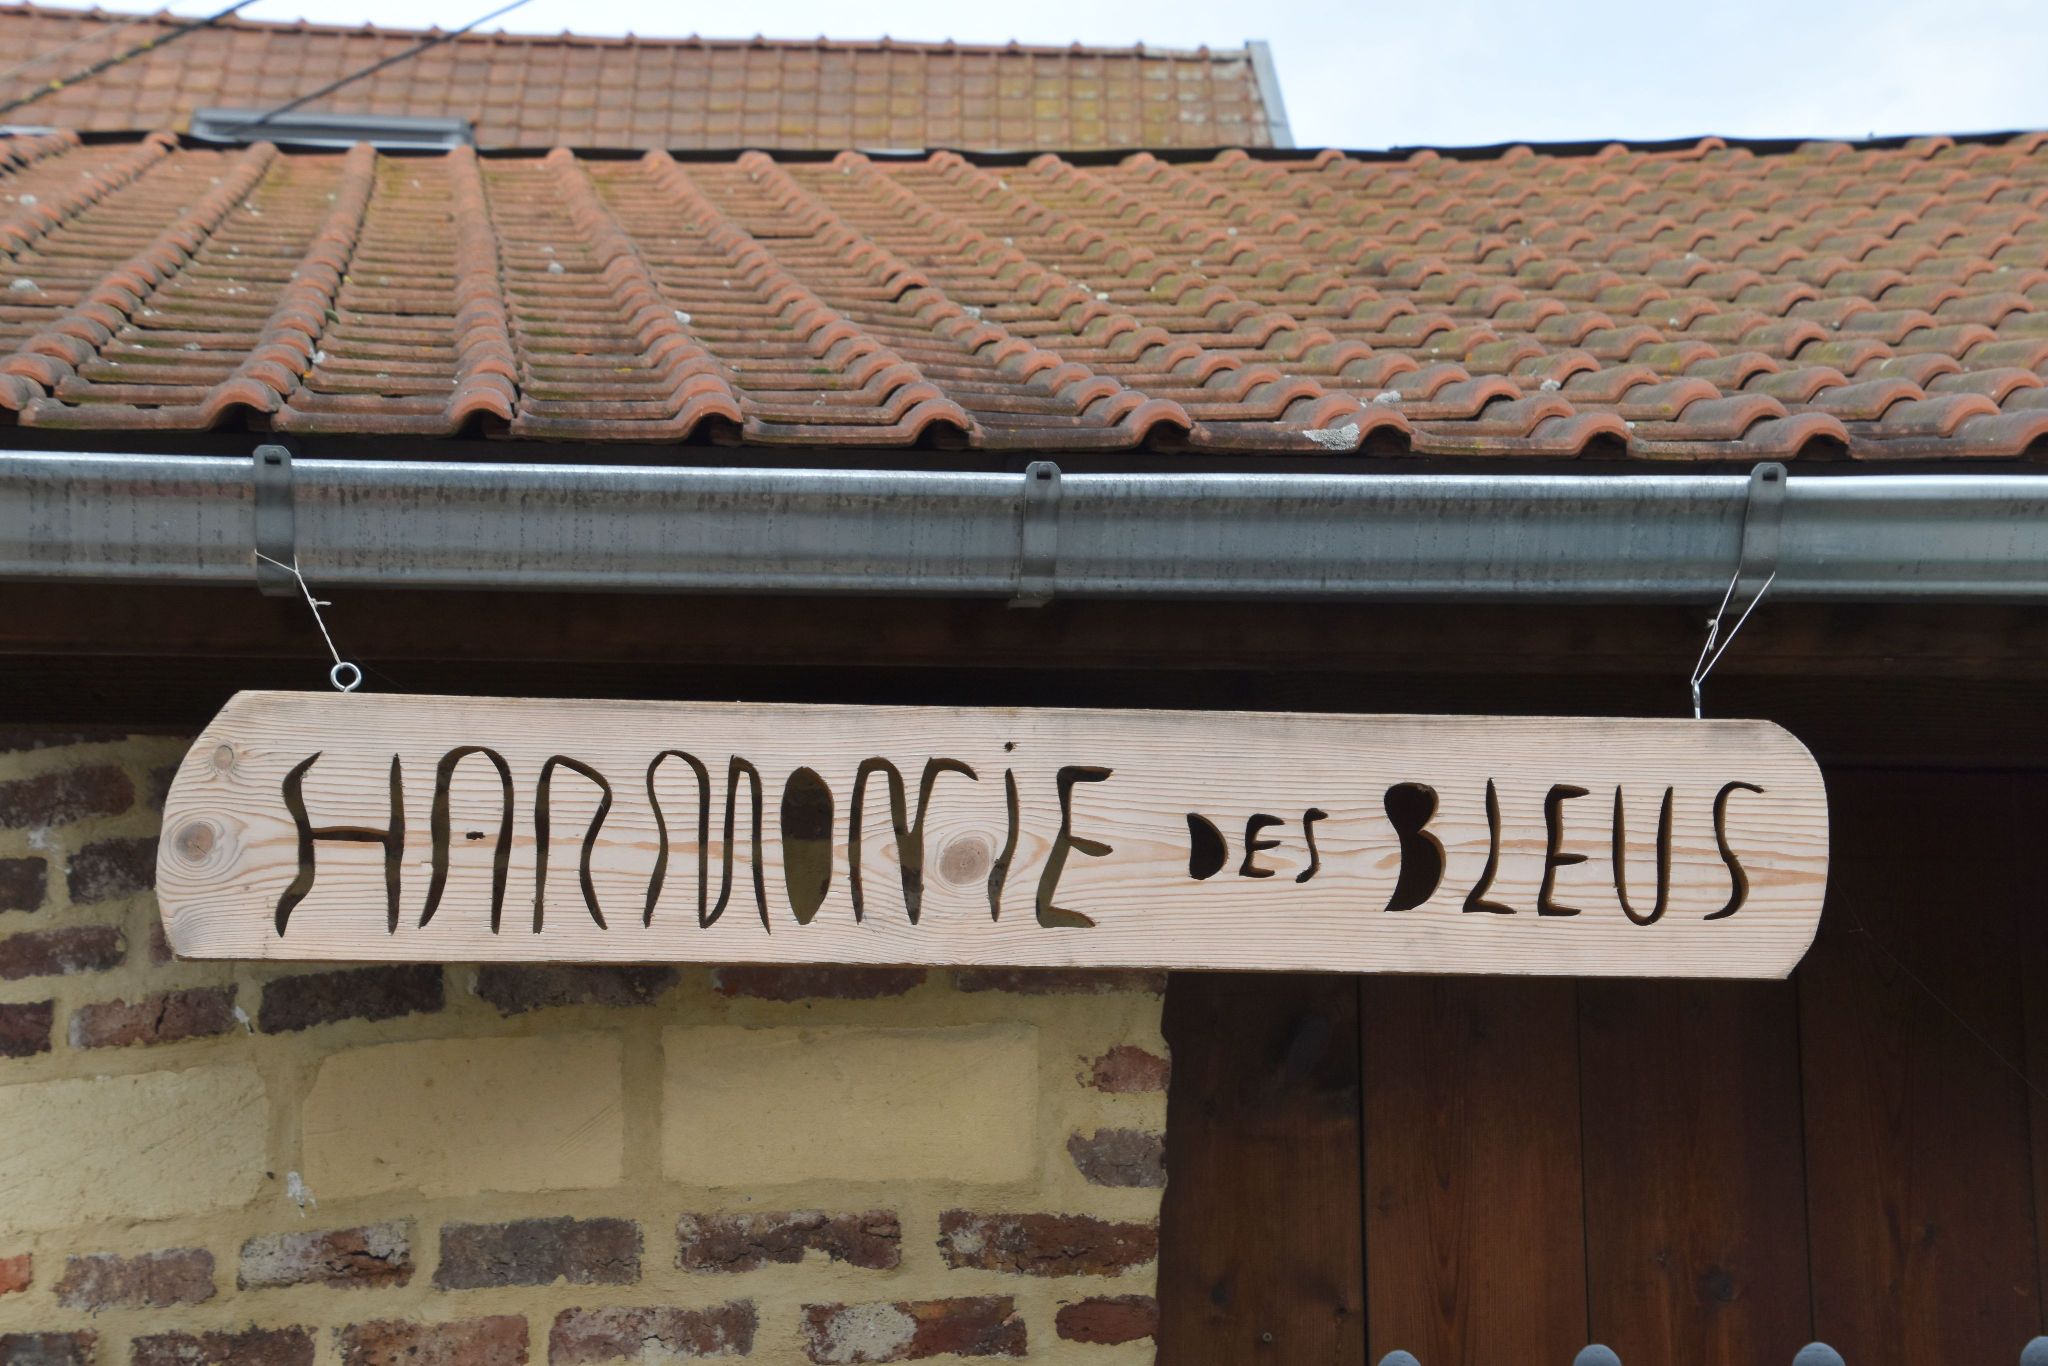 HARMONiE DES BLEUS